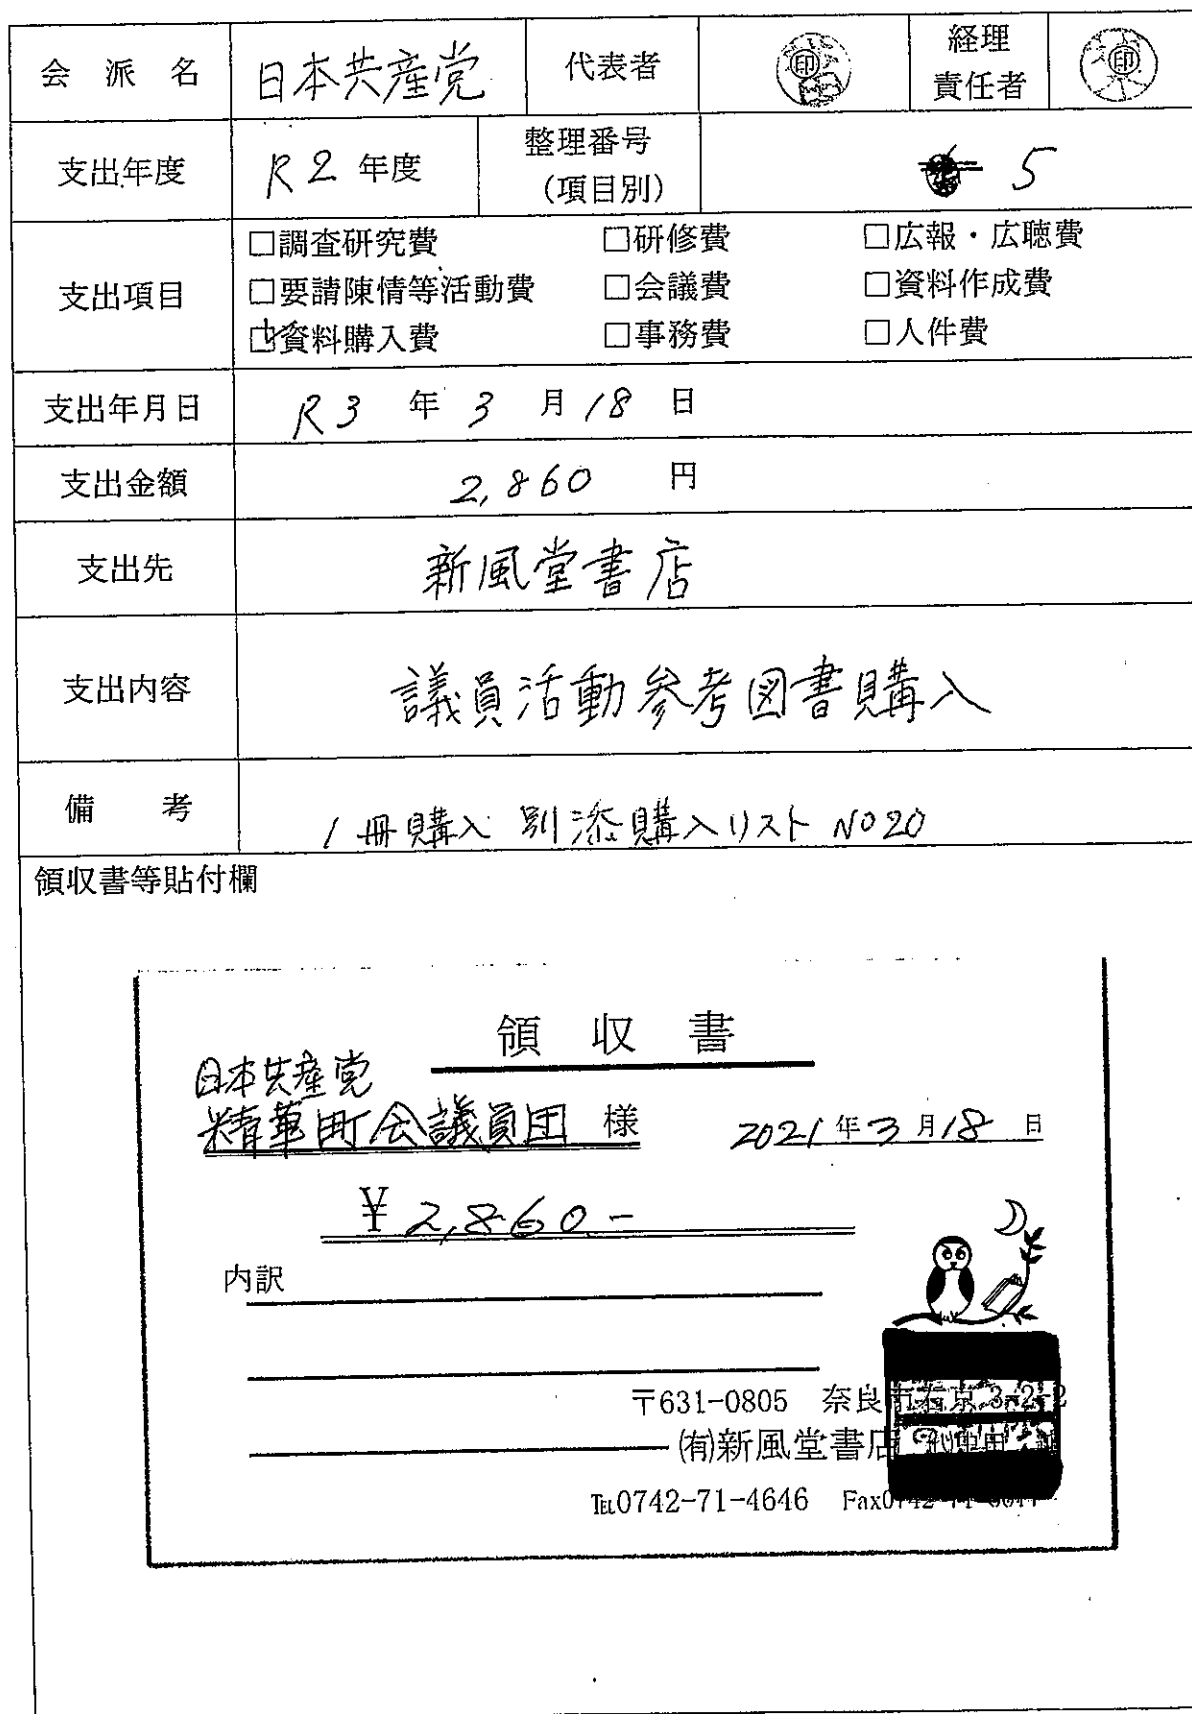 会派名 日本共産党 代表者 印 経理責任者 印
支出年度 R2年度 整理番号(項目別) 5
支出項目
□調査研究費 □研修費 □広報・広聴費
□要請陳情等活動費 □会議費 □資料作成費
☑資料購入費 □事務費 □人件費
支出年月日 R3年3月18日
支出金額 2,860円
支出先 新風堂書店
支出内容 議員活動参考図書購入
備考 1冊購入 別添購入リスト NO20
領収書等貼付欄
領収書
日本共産党
精華町会議員団 様 2021年3月18日
¥2,860-
内訳
〒631-0805 奈良市右京3-2-2
(有)新風堂書店
TEL0742-71-4646 Fax0742-71-